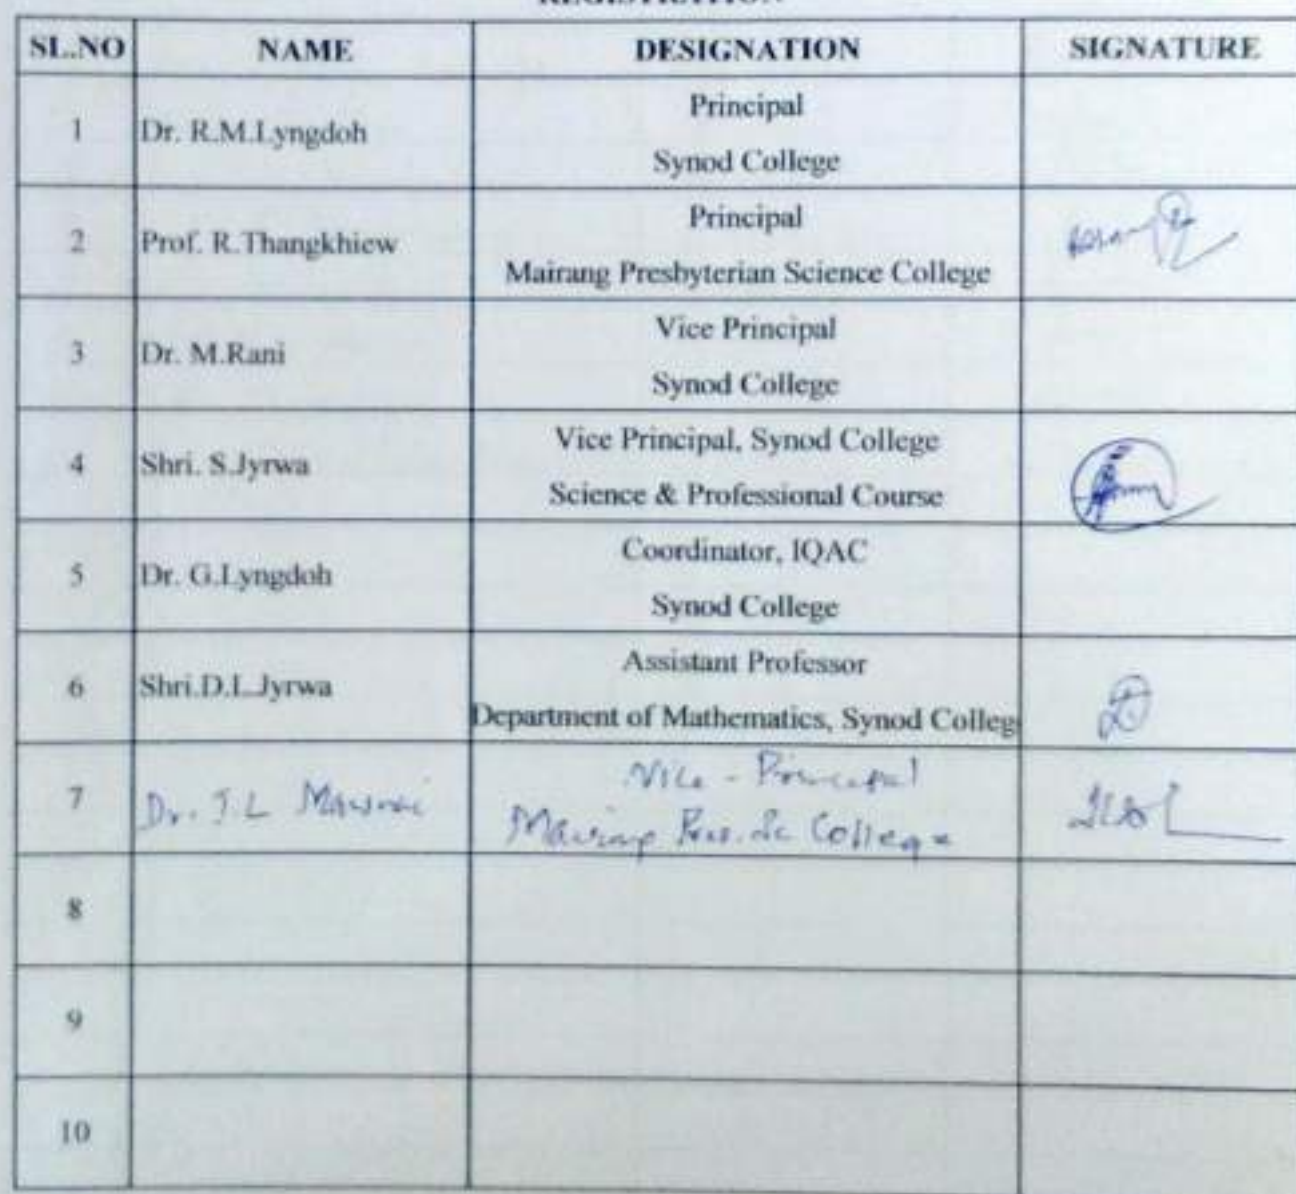 REGISTRATION
SL.NO NAME DESIGNATION SIGNATURE
1 Dr. R.M.Lyngdoh Principal
Synod College
2 Prof. R.Thangkhiew Principal
Mairang Presbyterian Science College
3 Dr. M.Rani Vice Principal
Synod College
4 Shri. S.Jyrwa Vice Principal, Synod College
Science & Professional Course
5 Dr. G.Lyngdoh Coordinator, IQAC
Synod College
6 Shri.D.L.Jyrwa Assistant Professor
Department of Mathematics, Synod Colleg
7 Dr. J.L Vice - Principal
Mairang Pres. Sc College
8
9
10